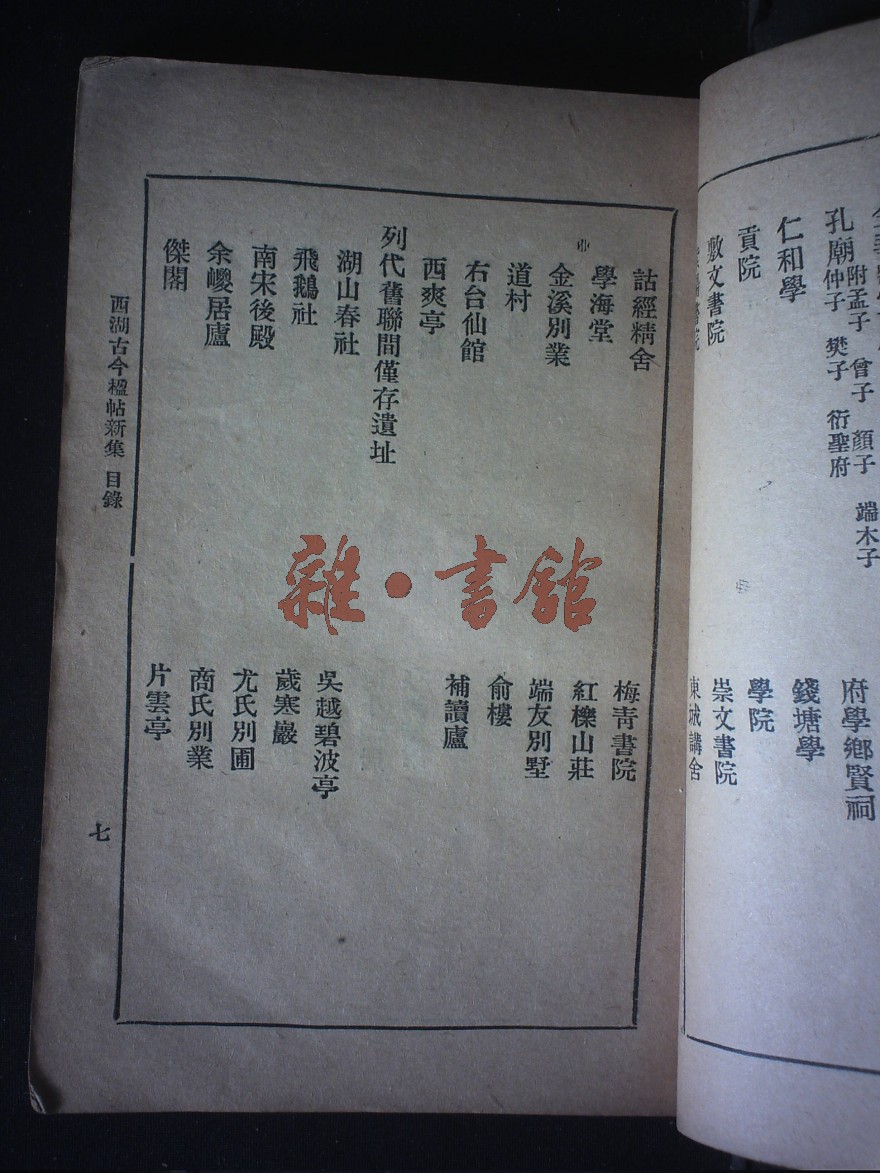 孔廟附孟子 曾子 顏子 端木子
仲子 樊子 衍聖府
府學鄉賢祠
仁和學
錢塘學
貢院
學院
敷文書院
崇文書院
東城講舍
詁經精舍
梅青書院
學海堂
紅櫟山莊
金溪別業
端友別墅
道村
俞樓
右台仙館
補讀廬
西爽亭
列代舊聯間僅存遺址
湖山春社
吳越碧波亭
飛鵝社
歲寒巖
南宋後殿
尤氏別圃
余巙居廬
商氏別業
傑閣
片雲亭
西湖古今楹帖新集 目錄
七
雜·書館